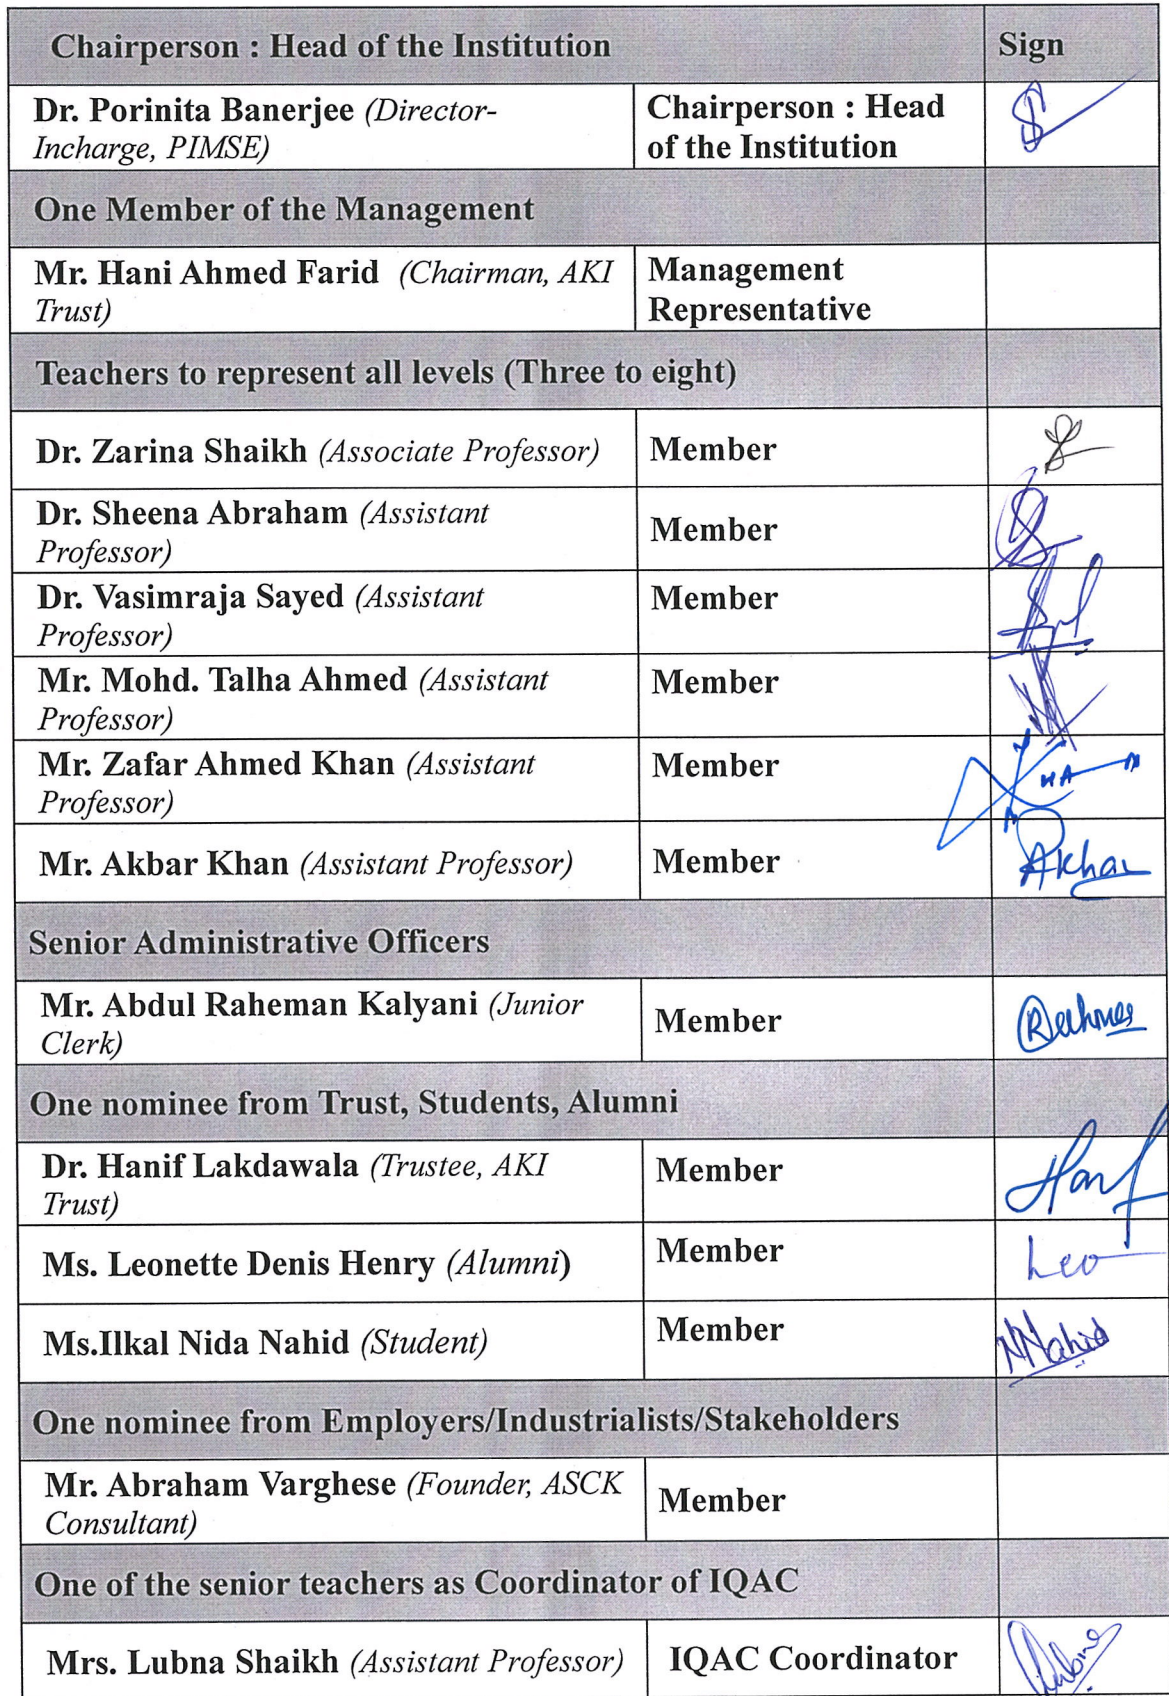 Chairperson : Head of the Institution Sign
Dr. Porinita Banerjee (Director-
Incharge, PIMSE)
Chairperson : Head
of the Institution
One Member of the Management
Mr. Hani Ahmed Farid (Chairman, AKI
Trust)
Management
Representative
Teachers to represent all levels (Three to eight)
Dr. Zarina Shaikh (Associate Professor) Member
Dr. Sheena Abraham (Assistant
Professor)
Member
Dr. Vasimraja Sayed (Assistant
Professor)
Member
Mr. Mohd. Talha Ahmed (Assistant
Professor)
Member
Mr. Zafar Ahmed Khan (Assistant
Professor)
Member
Mr. Akbar Khan (Assistant Professor) Member
Senior Administrative Officers
Mr. Abdul Raheman Kalyani (Junior
Clerk)
Member
One nominee from Trust, Students, Alumni
Dr. Hanif Lakdawala (Trustee, AKI
Trust)
Member
Ms. Leonette Denis Henry (Alumni) Member Leo
Ms.Ilkal Nida Nahid (Student) Member NNahid
One nominee from Employers/Industrialists/Stakeholders
Mr. Abraham Varghese (Founder, ASCK
Consultant)
Member
One of the senior teachers as Coordinator of IQAC
Mrs. Lubna Shaikh (Assistant Professor) IQAC Coordinator